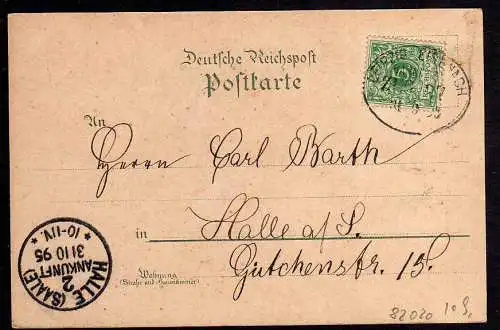 Deutsche Reichspost
Postkarte
An
Herrn Carl Barth
in Halle a/S.
Gütchenstr. 15.
Wohnung
(Straße und Hausnummer)
HALLE (SAALE)
2
ANKUNFT
31 10 95
* 10-11V. *
EISENACH
5
82020